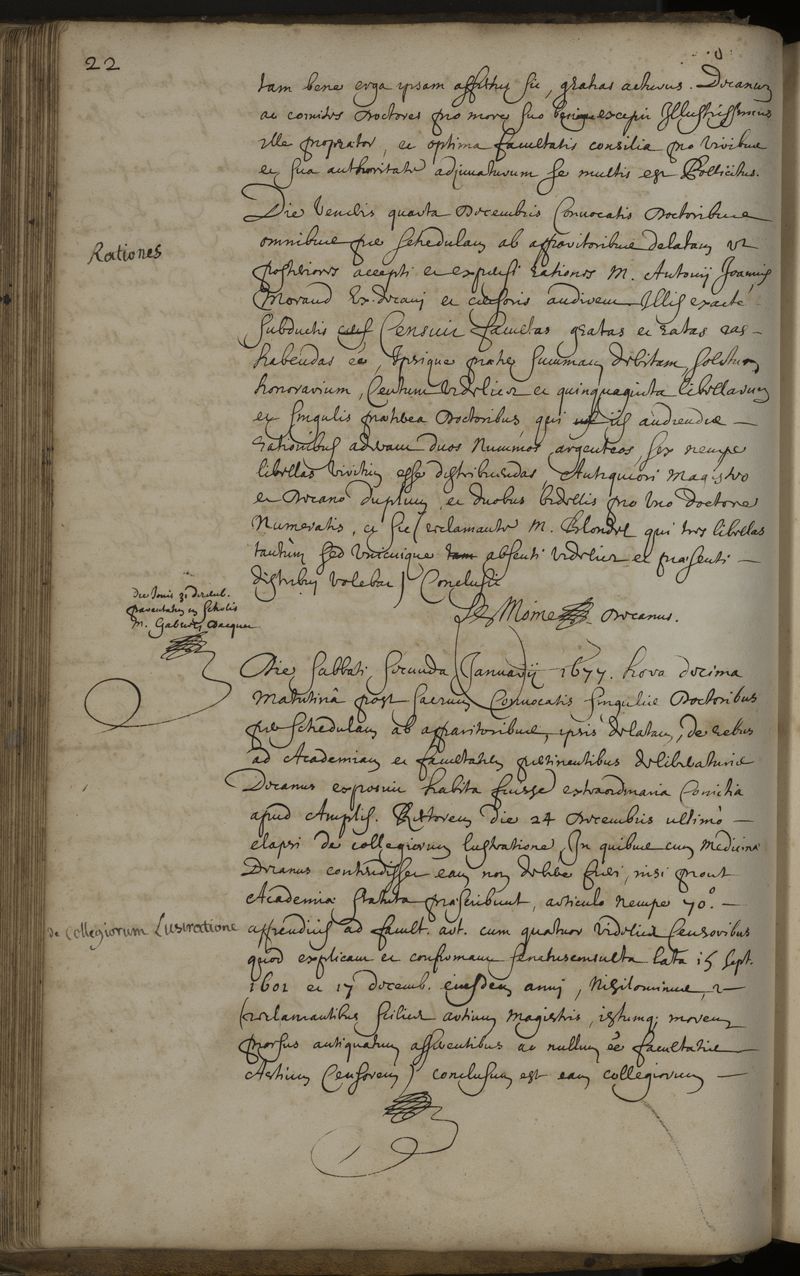 22
tam bene erga ipsam affectus sit, gratias acturus. Decanus
ac comites Doctores pro more suo benigne excepit Illustrissimus
ille propraetor, et optima facultatis consilia pro viribus
et sua authoritate adjuvaturum se multis est Pollicitus.
Die Veneris quarta Decembris Convocatis Doctoribus
omnibus per schedulam ab apparitoribus delatam ut
Rationes
accepti et expensi rationes M. Antonij Joannis
Morand Ex-decani et censoris audirent. Illis exacte
subductis Censuit facultas gratas et ratas
habendas ee, Ipsique praeter summam debitam, solitum
honorarium, Centum videlicet et quinquaginta libellarum
et singulis praeterea Doctoribus qui iis audiendis
rationibus aderant duos nummos argenteos, sex nempe
libellas viritim esse distribuendas, Antiquiori Magistro
et Decano duplum, et duobus bidellis pro uno doctore
Numeratis, et sic (reclamante M. Blondel qui tres libellas
tantum sed unicuique tam absenti videlicet et praesenti
distribui volebat) Conclusit
Le Moine Decanus.
die Jovis 31 decemb.
in scholis
M.
Die sabbati secunda Januarij 1677. hora decima
Matutina post sacrum Convocatis singulis Doctoribus
per schedulam ab apparitoribus, ipsis delatam, de rebus
ad Academiam et facultatem pertinentibus deliberaturis
Decanus exposuit habita fuisse extraordinaria Comitia
apud Amplis. Rectorem die 24 Decembris ultimo
elapsi de collegiorum lustratione, In quibus cum Medicinae
Decanus contendisset eam non debere fieri, nisi prout
Academiae statuta praescribunt, articulo nempe 70.o
de Collegiorum Lustratione
appendicis ad facult. art. cum quatuor videlicet Censoribus
quod explicant et confirmant senatusconsulta lata 15 sept.
1601 et 17 decemb. ejusdem anni, Nihilominus,
(reclamantibus scilicet artium Magistris, istumq; morem
prorsus antiquatum asserentibus ac nullum ee facultatis
Artium Censorem) conclusum est eam collegiorum